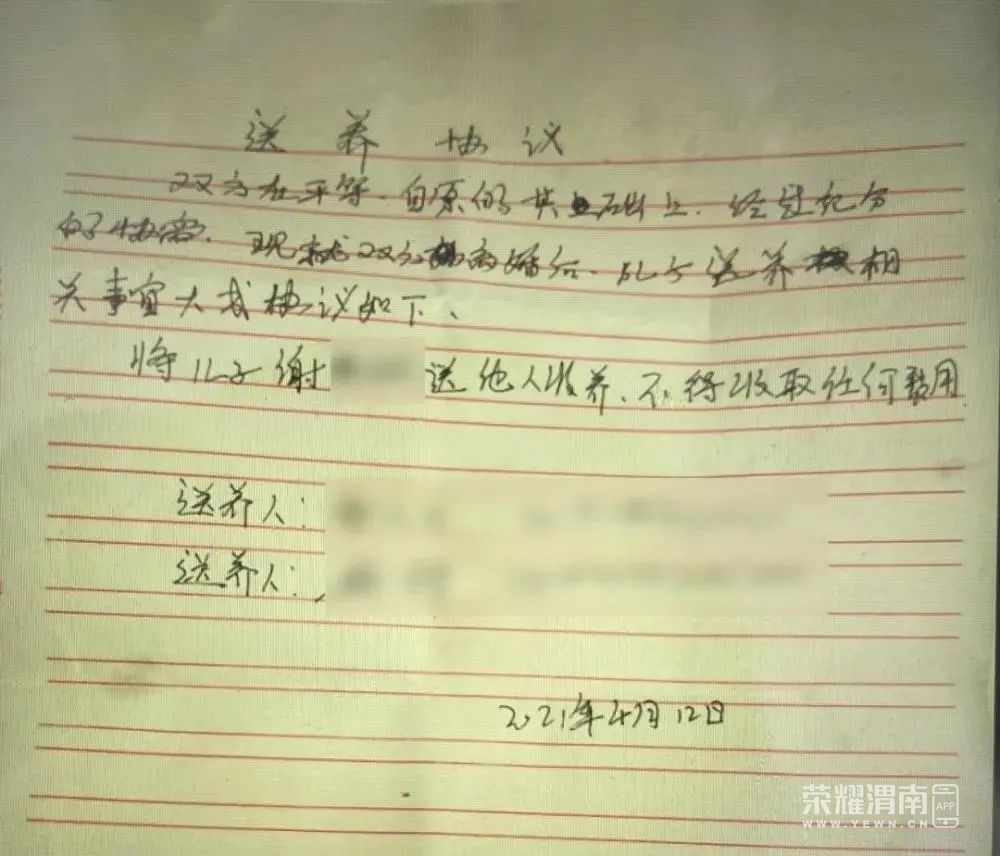 送养协议
双方在平等、自原的基础上、经过充分
的协商、现就双方离婚后、儿子送养相
关事宜大成协议如下、
将儿子谢 送他人收养、不得收取任何费用
送养人:
送养人:
2021年4月12日
荣耀渭南 APP
WWW.YEWN.CN